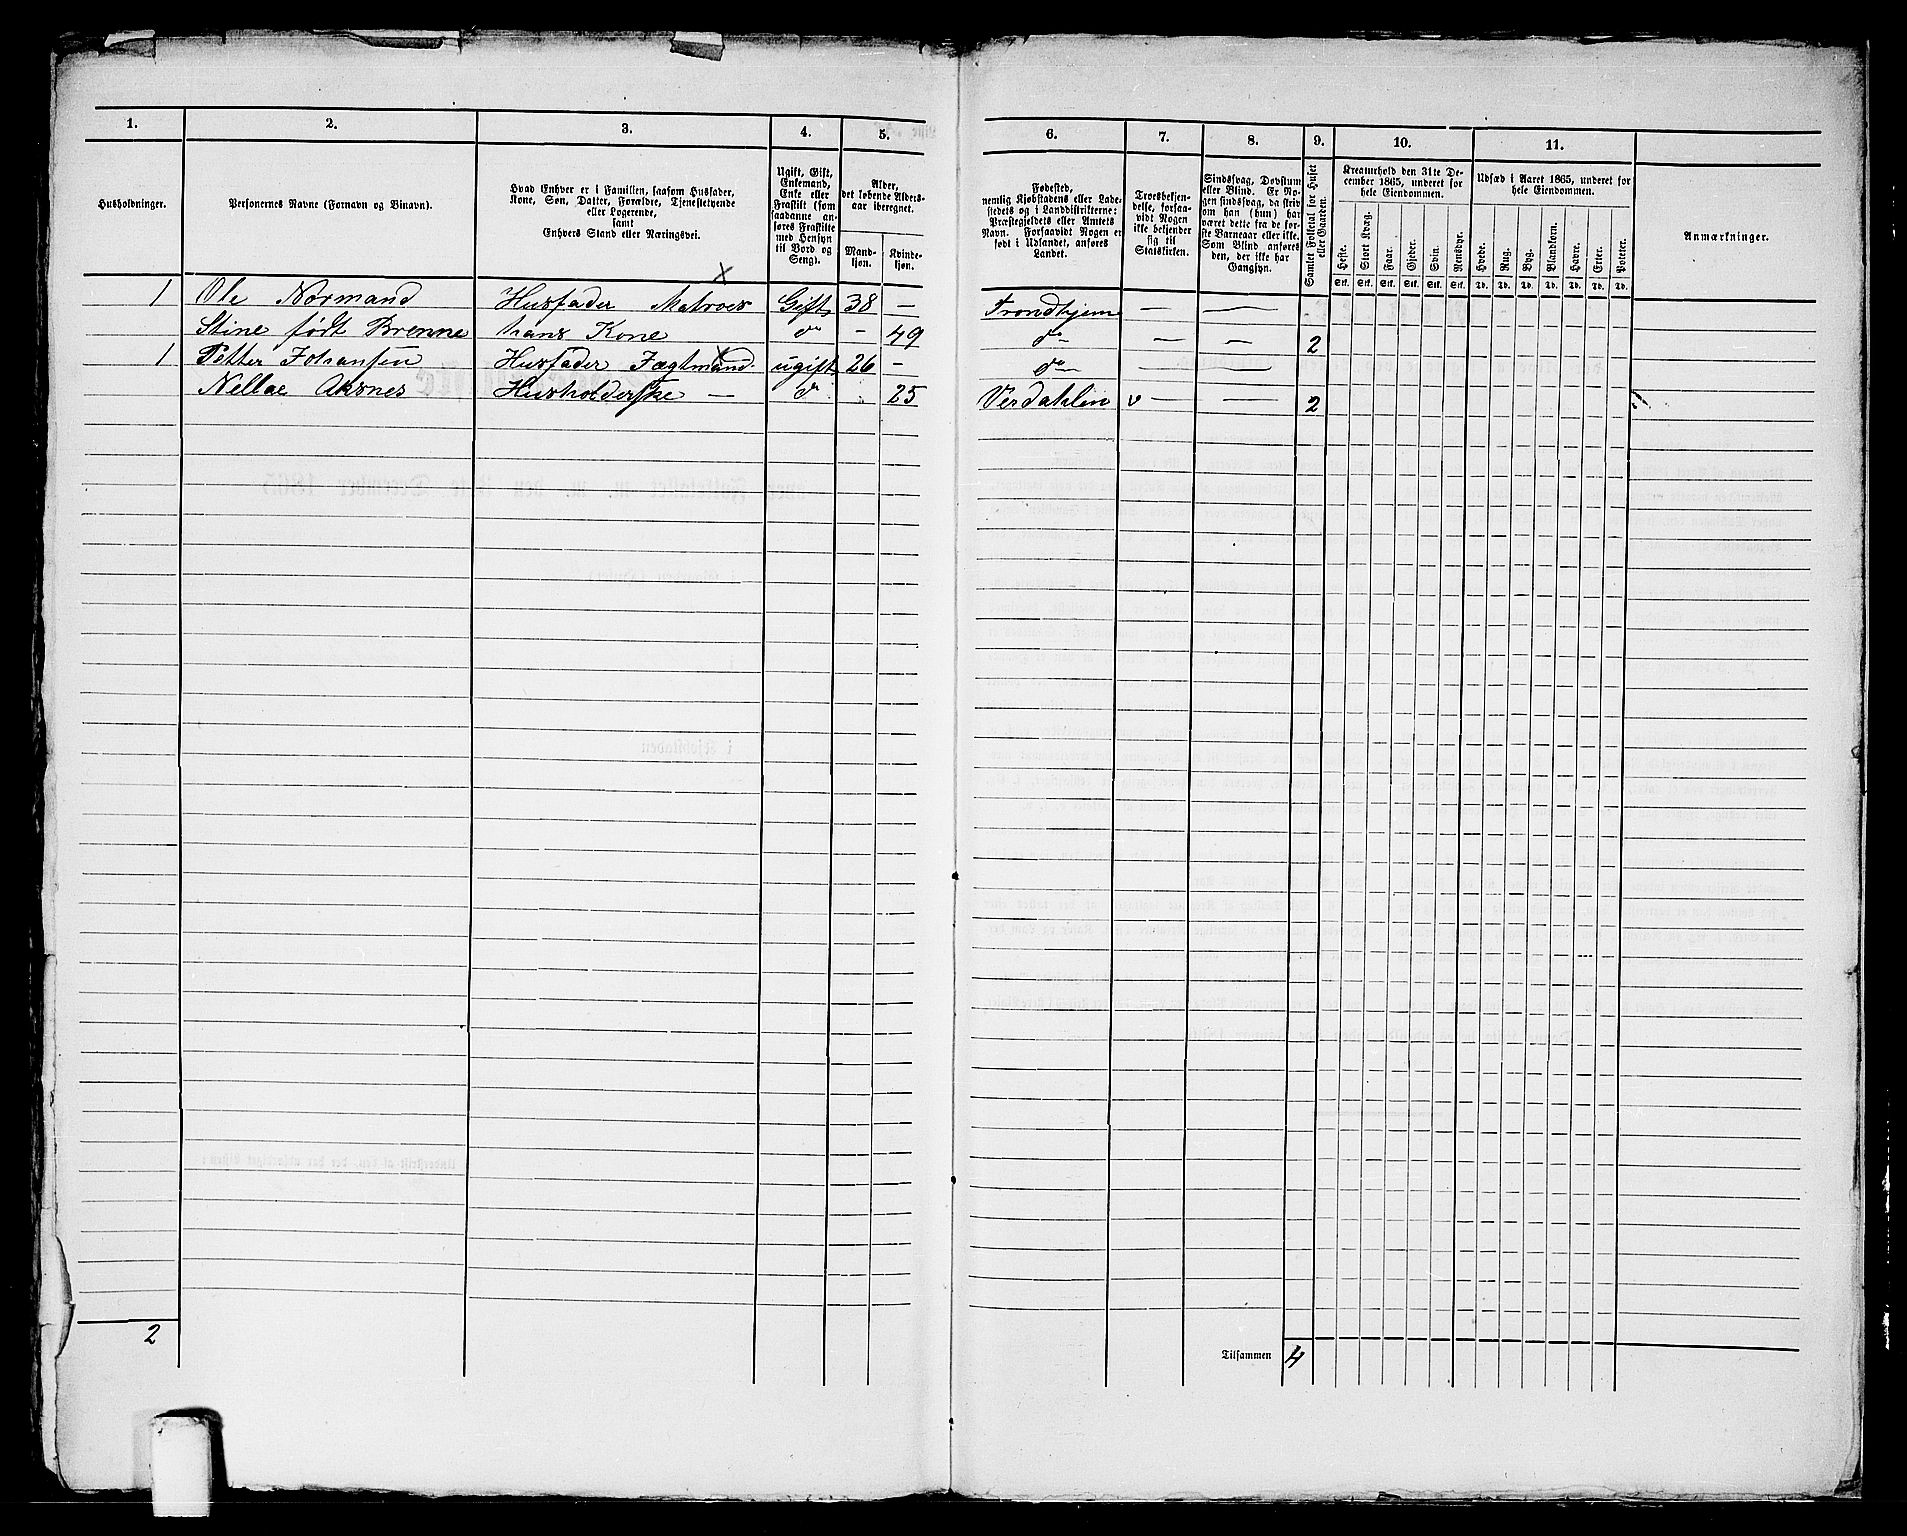 1. 2. 3. 4. 5. 6. 7. 8. 9. 10. 11.
Husholdninger.
Personernes Navne (Fornavn og Binavn).
Hvad Enhver er i Familien, saasom Husfader,
Kone, Søn, Datter, Forældre, Tjenestetyende
eller Logerende,
samt
Enhvers Stand eller Næringsvei.
Ugift, Gift,
Enkemand,
Enke eller
Fraskilt (som
saadanne an-
føres Fraskilte
med Hensyn
til Bord og
Seng).
Alder,
det løbende Alders-
aar iberegnet.
Mand-
kjøn.
Kvinde-
kjøn.
Fødested,
nemlig Kjøbstadens eller Lade-
stedets og i Landdistrikterne:
Præstegjeldets eller Amtets
Navn. Forsaavidt Nogen er
født i Udlandet, anføres
Landet.
Troesbekjen-
delse, forsaa-
vidt Nogen
ikke bekjender
sig til
Statskirken.
Sindssvag, Døvstum
eller Blind. Er No-
gen sindssvag, da skriv
om han (hun) har
været dette fra de før-
ste Barneaar eller ikke.
Som Blind anføres
den, der ikke har
Gangsyn.
Samlet Folketal for Huset
eller Gaarden.
Kreaturhold den 31te De-
cember 1865, underet for
hele Eiendommen.
Heste. Stort Kvæg. Faar. Gjeder. Svin. Rensdyr.
Stk. Stk. Stk. Stk. Stk. Stk.
Udsæd i Aaret 1865, underet for
hele Eiendommen.
Hvede. Rug. Byg. Blandkorn. Havre. Erter. Poteter.
Td. Td. Td. Td. Td. Td. Td.
Anmærkninger.
1 Ole Normand Husfader Matroes Gift 38 — Trondhjem — —
Stine født Brenne hans Kone do — 49 do — — 2
1 Petter Johansen Husfader Jægtmand ugift 26 — do — —
Nellae Aksnes Husholderske — do 25 Verdahlen v — — 2
2
Tilsammen 4